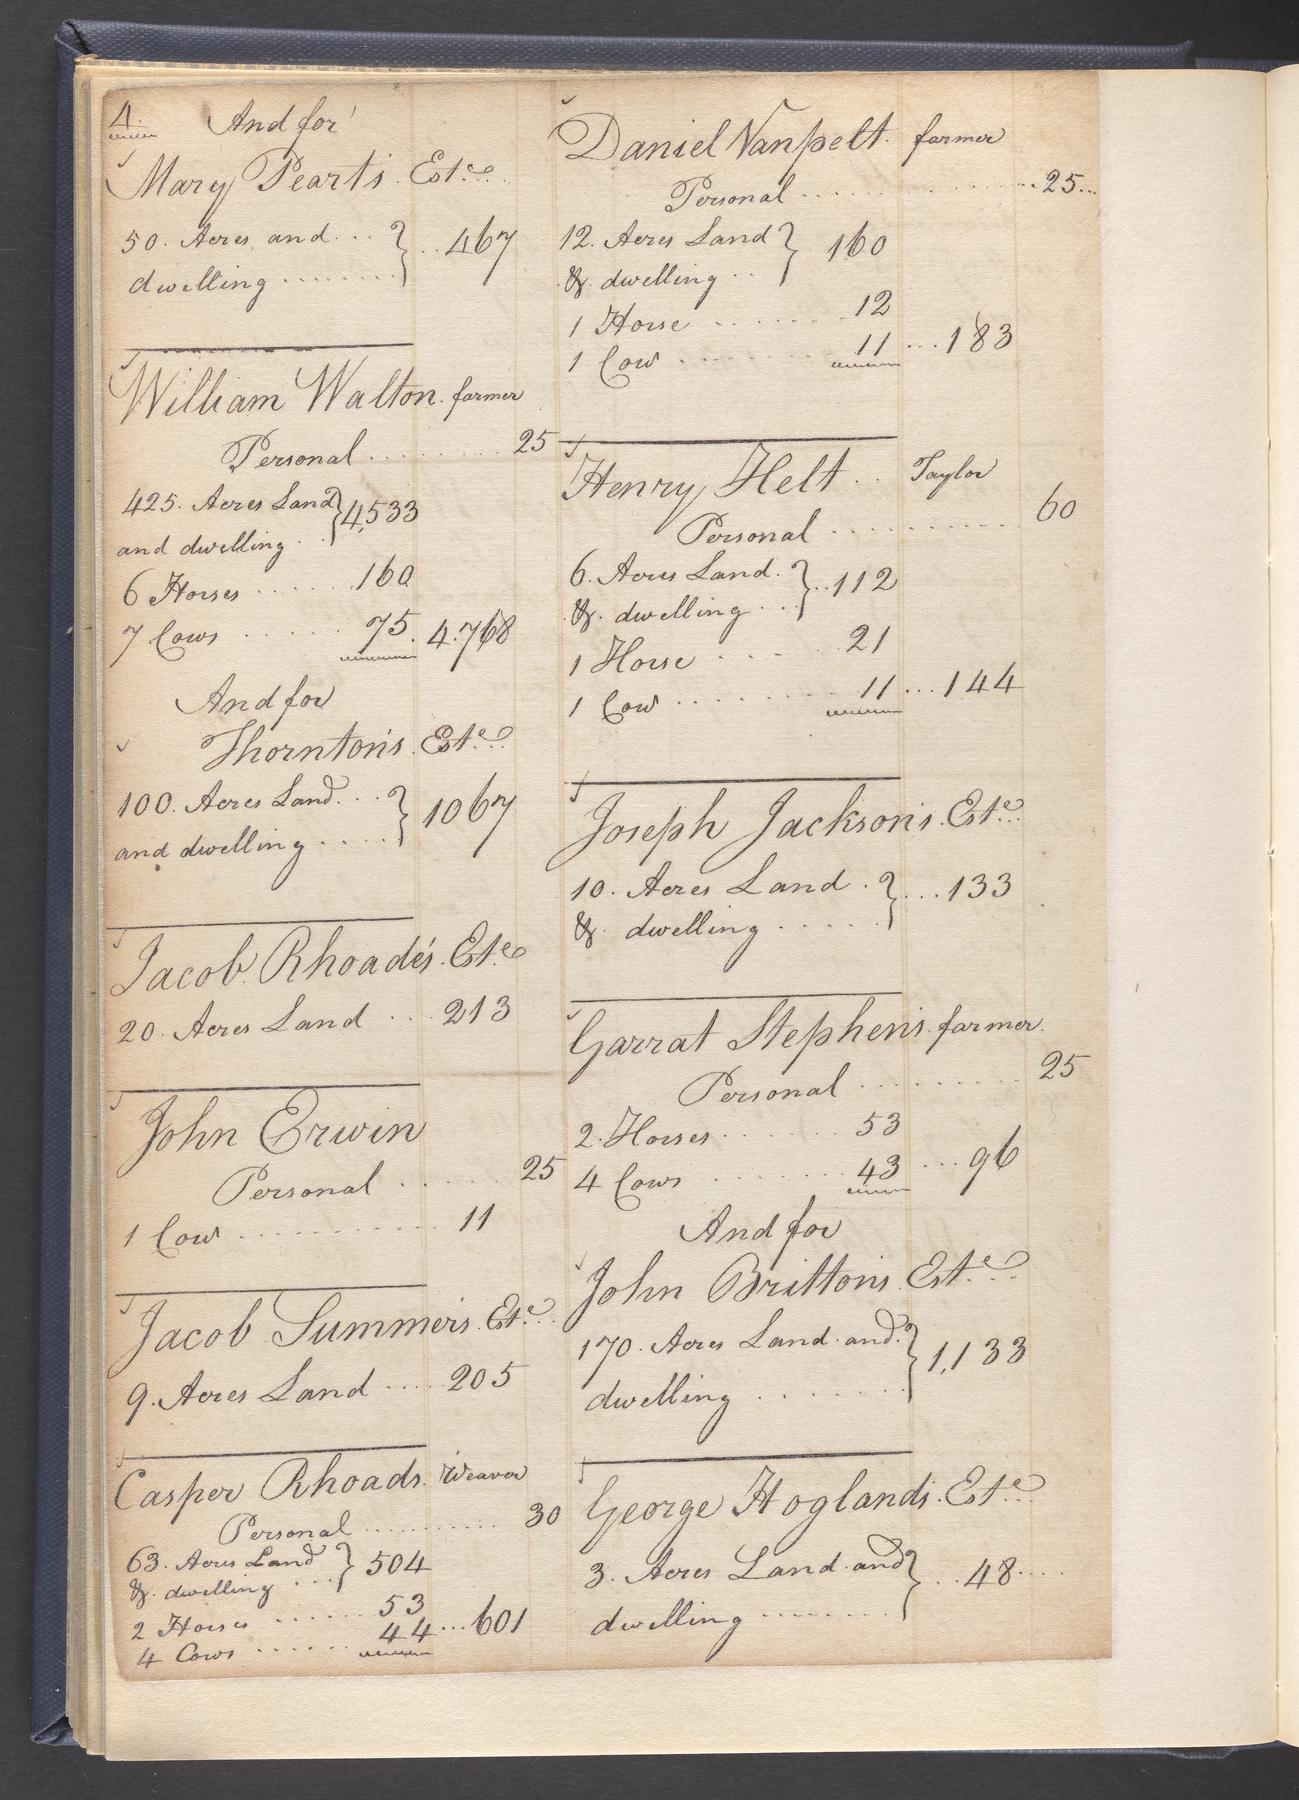 4. And for
Mary Peart's Est.e
50. Acres and ... } .. 467
dwelling ........
William Walton. farmer
Personal ......... 25
425. Acres Land } 4,533
and dwelling .
6 Horses ..... 160
7 Cows ...... 75. 4.768
And for
Thornton's Est.e
100. Acres Land ... } 1067
and dwelling ....
Jacob Rhoade's. Est.e
20. Acres Land ... 213
John Erwin
Personal ...... 25
1 Cow ............ 11
Jacob Summer's Est.e
9. Acres Land .... 205
Casper Rhoads. Weaver
Personal ............ 30
63. Acres Land } 504
&. dwelling ...
2 Horses ...... 53
4 Cows ...... 44 ... 601
Daniel Vanpelt. farmer
Personal ................ 25...
12. Acres Land } 160
&. dwelling ..
1 Horse ........ 12
1 Cow ......... 11 ... 183
Henry Helt .. Taylor
Personal ........... 60
6. Acres Land. } .. 112
&. dwelling ...
1 Horse ..... 21
1 Cow ......... 11 ... 144
Joseph Jackson's. Est.e
10. Acres Land . } ... 133
&. dwelling .....
Garrat Stephen's. farmer.
Personal ......... 25
2. Horses ....... 53
4 Cows ........ 43 ... 96
And for
John Britton's Est.e
170. Acres Land. and. } 1,133
dwelling ........
George Hogland's. Est.e
3. Acres Land. and } .. 48....
dwelling ........